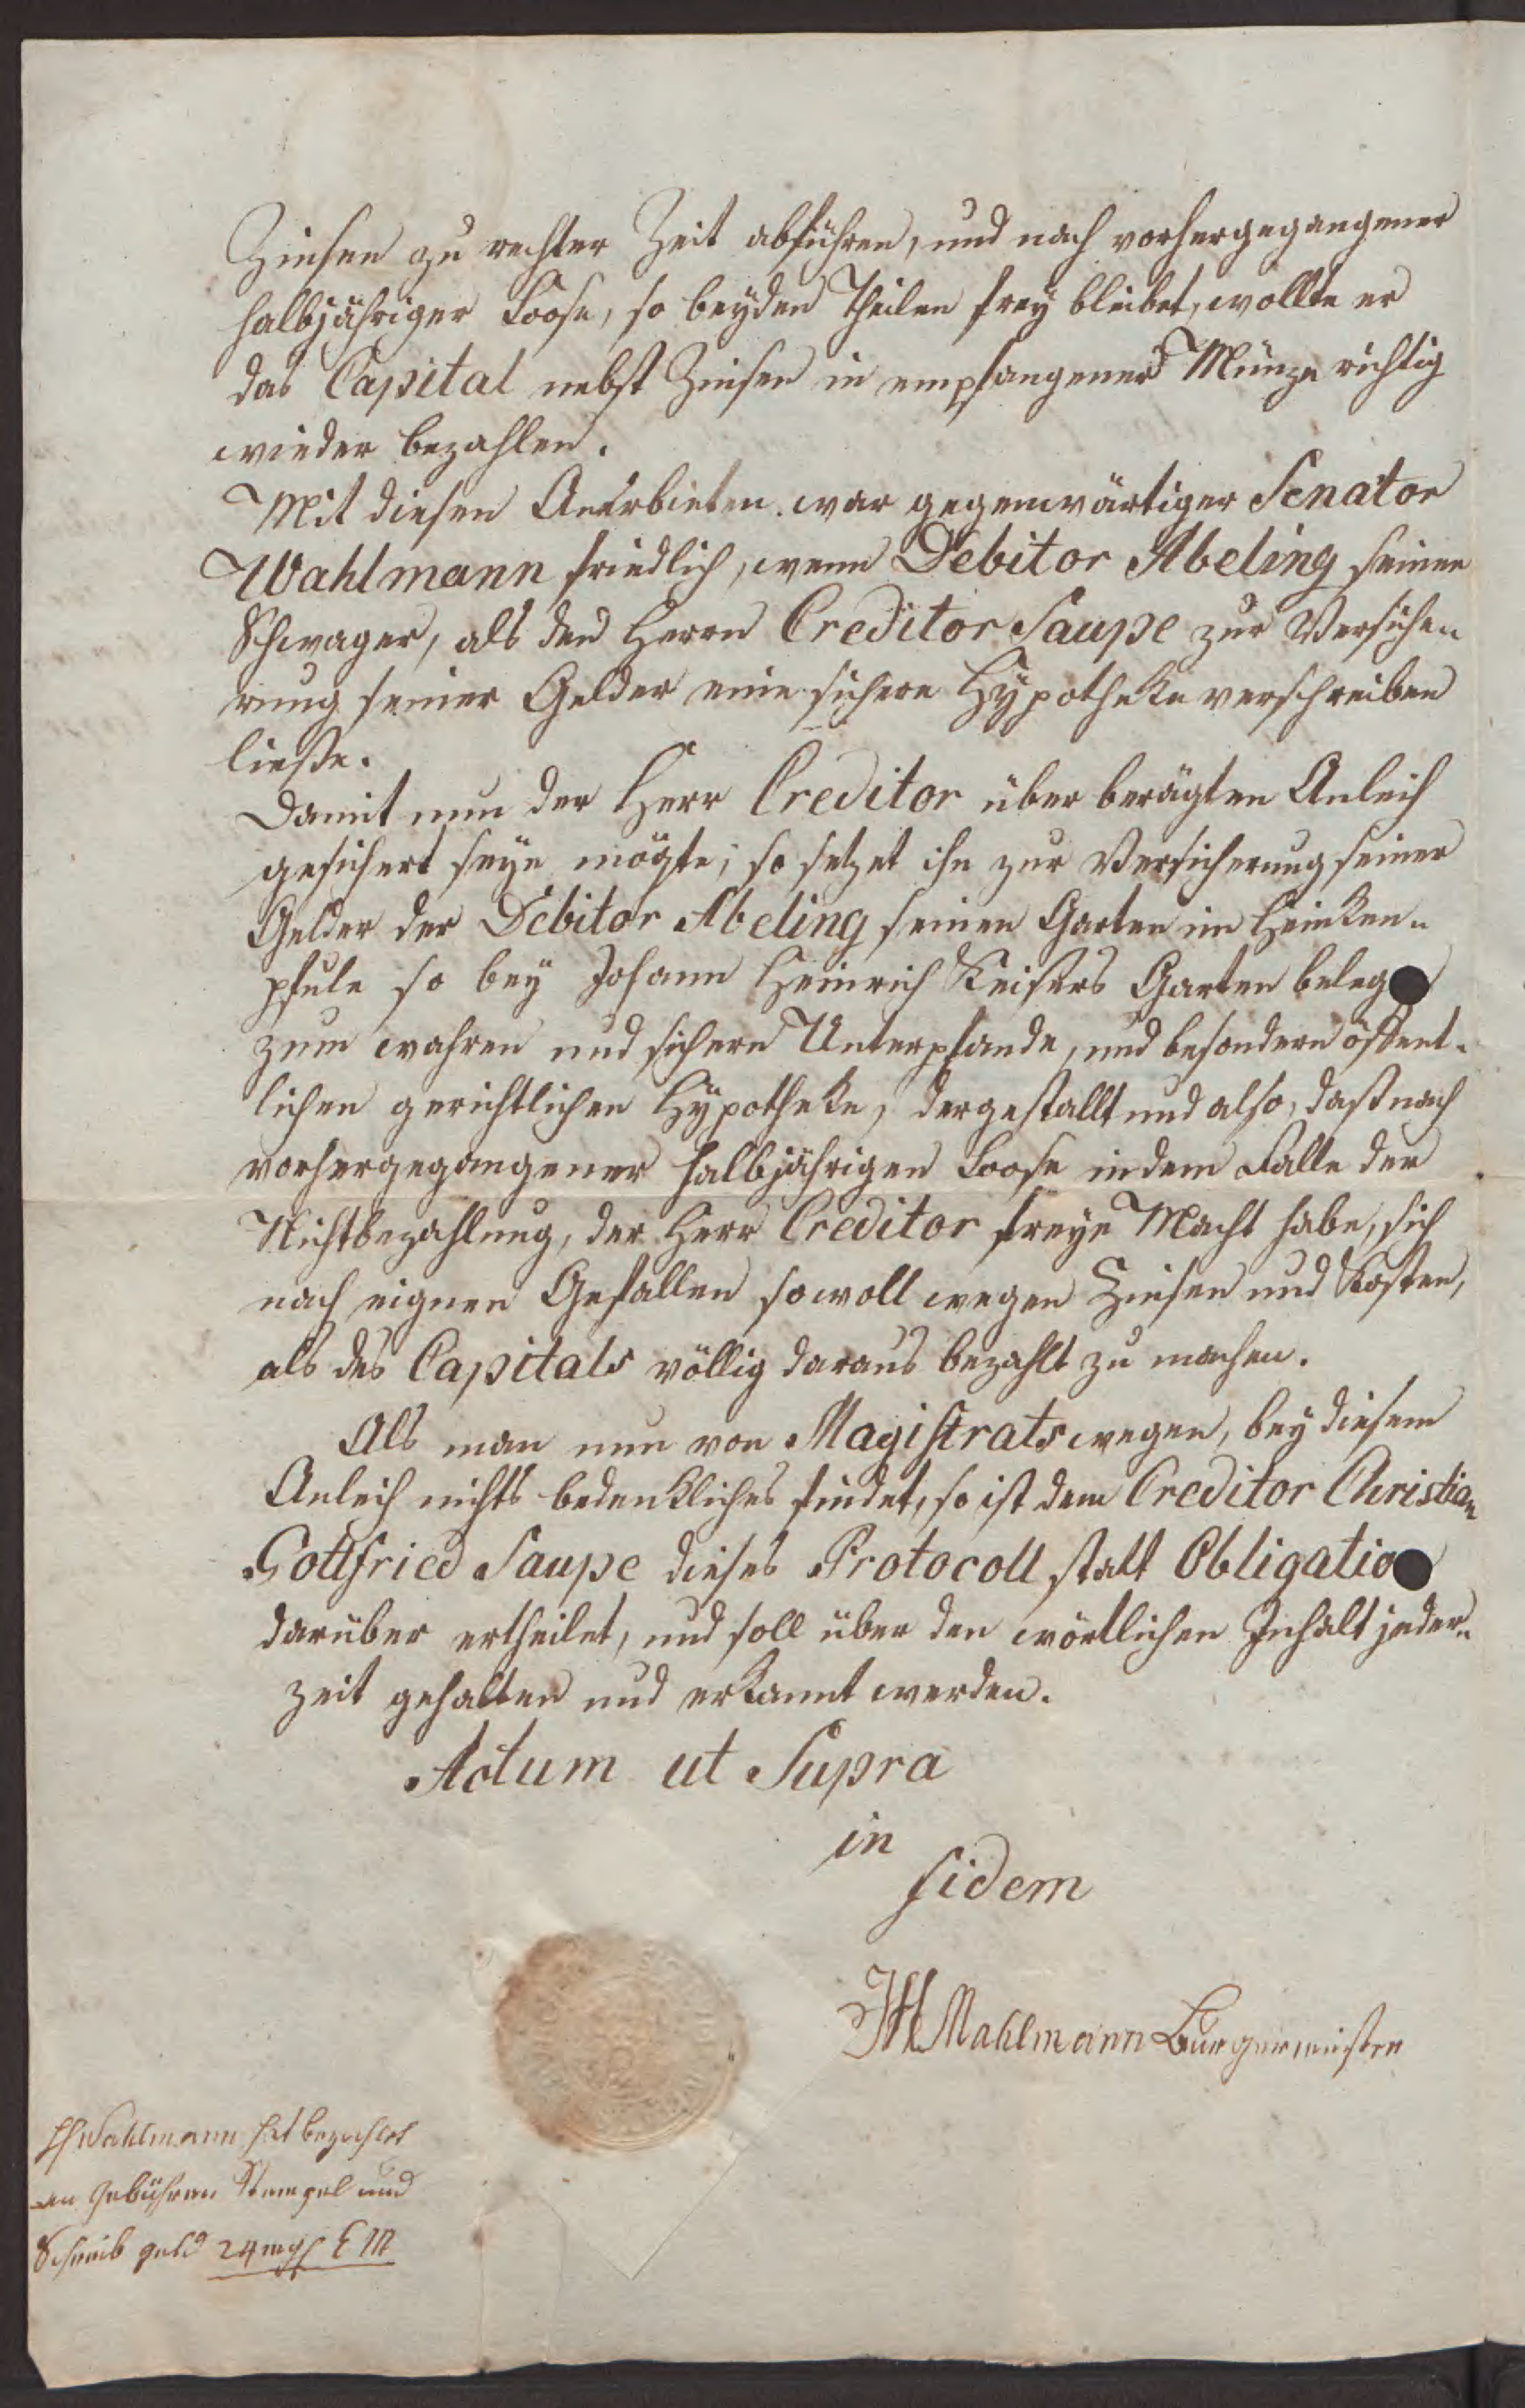 Zinsen zu rechter Zeit abführen, und nach vorhergegangener
halbjähriger Loose, so beyden Theilen frey bleibet, wollte er
das Capital nebst Zinsen in empfangener Münze richtig
wieder bezahlen.
Mit diesen Anerbieten war gegenwärtiger Senator
Wahlmann friedlich, wenn Debitor Abeling seinen
Schwager, als den Herrn Creditor Saupe zur Versiche„
rung seiner Gelder eine sichere Hypotheke verschreiben
ließe.
Damit nun der Herr Creditor über berägten Anleih
gesichert seyn mögte; so setzet ihn zur Versicherung seiner
Gelder der Debitor Abeling seinen Garten im Heinken„
pfule so bey Johann Heinrich Keisers Garten beleg
zum wahren und sichern Unterpfande, und besondern öffent„
lichen gerichtlichen Hypotheke, dergestallt und also, daß nach
vorhergegangener halbjährigen Loose in dem Falle der
Nichtbezahlung, der Herr Creditor freye Macht habe, sich
nach eignen Gefallen sowoll wegen Zinsen und Kosten,
als des Capitals völlig daraus bezahlt zu machen.
Als man nun von Magistrats wegen, bey diesem
Anleih nichts bedenkliches findet, so ist dem Creditor Christian
Gottfried Saupe dieses Protocoll statt Obligatio
darüber ertheilet, und soll über den wörtlichen Inhalt jeder„
zeit gehalten und erkannt werden.
Actum ut Supra
in
fidem
Mahlmann Burgermeister
Wahlmann hat bezahlet
an Gebühren Stempel und
Schreib geld 24 mgl C M